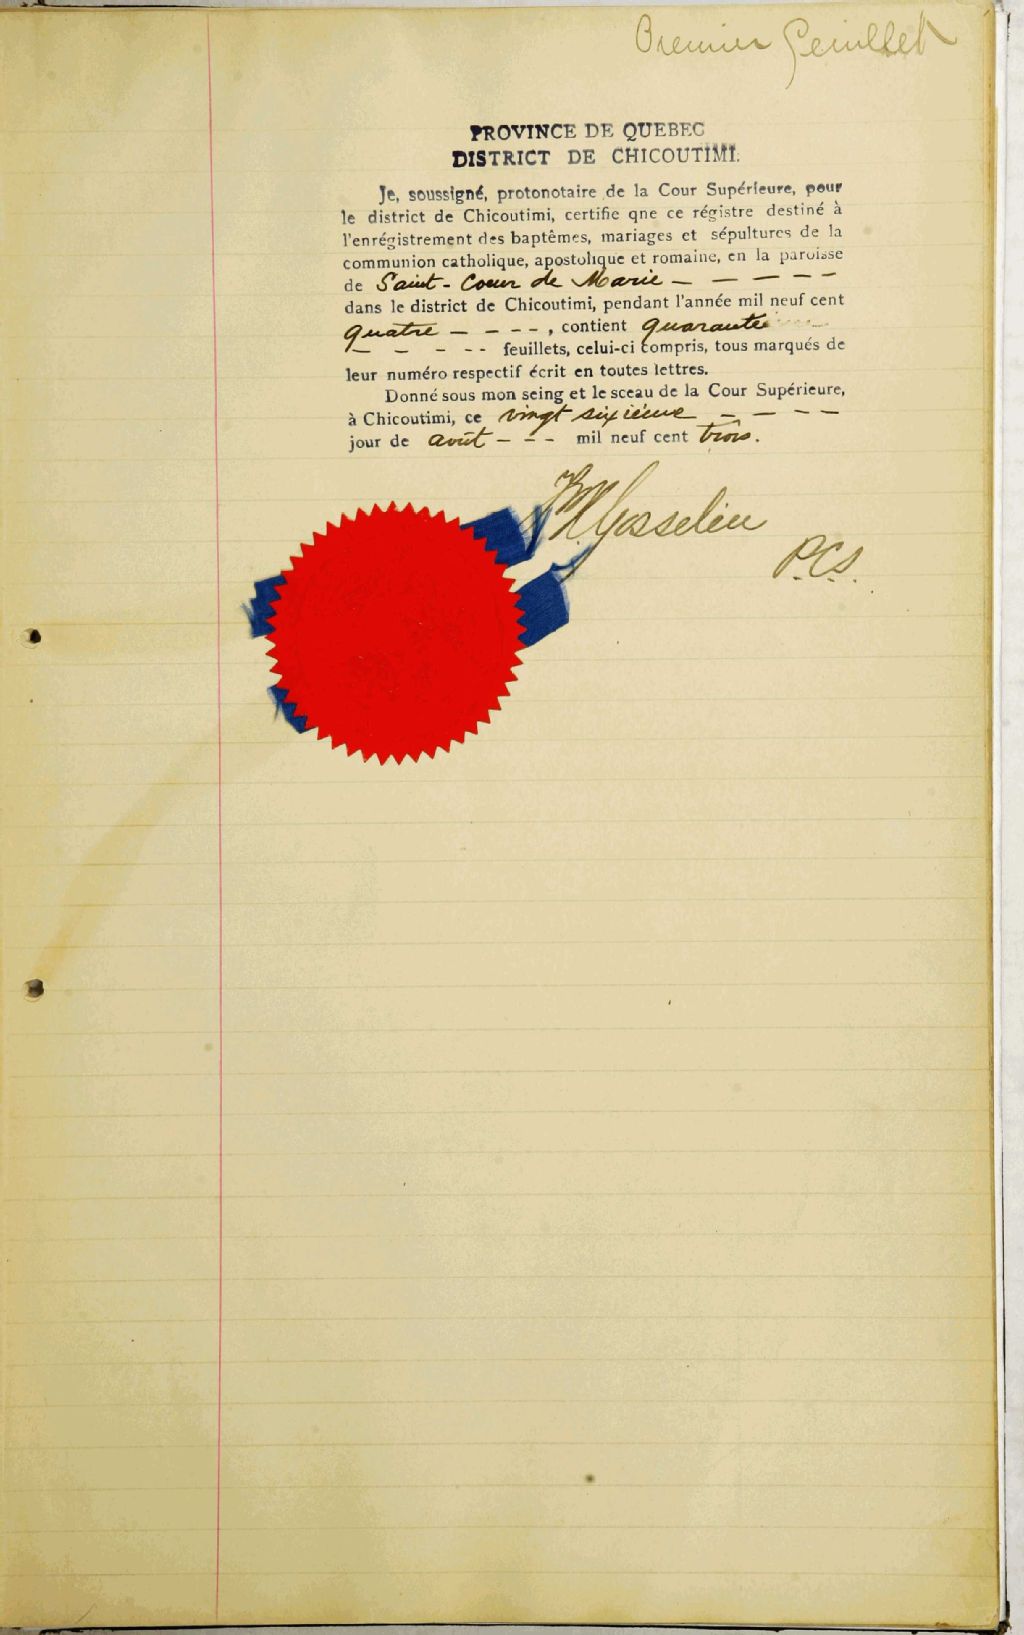 Premier feuillet
PROVINCE DE QUEBEC
DISTRICT DE CHICOUTIMI.
Je, soussigné, protonotaire de la Cour Supérieure, pour
le district de Chicoutimi, certifie qne ce régistre destiné à
l'enrégistrement des baptêmes, mariages et sépultures de la
communion catholique, apostolique et romaine, en la paroisse
de Saint-Coeur de Marie - - - - -
dans le district de Chicoutimi, pendant l'année mil neuf cent
quatre - - - - , contient quarante
- - - - - feuillets, celui-ci compris, tous marqués de
leur numéro respectif écrit en toutes lettres.
Donné sous mon seing et le sceau de la Cour Supérieure,
à Chicoutimi, ce vingt sixième - - - -
jour de août - - - mil neuf cent trois.
Gosselin
P.C.S.